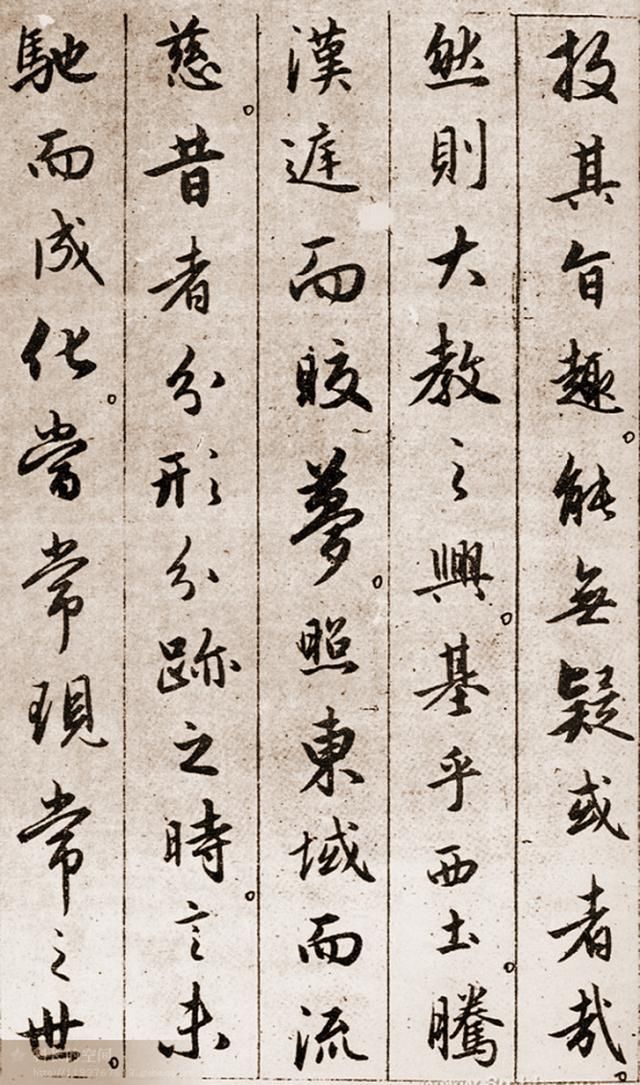 投其旨趣。能無疑或者哉。
然則大教之興。基乎西土。騰
漢遅而皎夢。照東域而流
慈。昔者分形分跡之時。言未
馳而成化。當常現常之世。